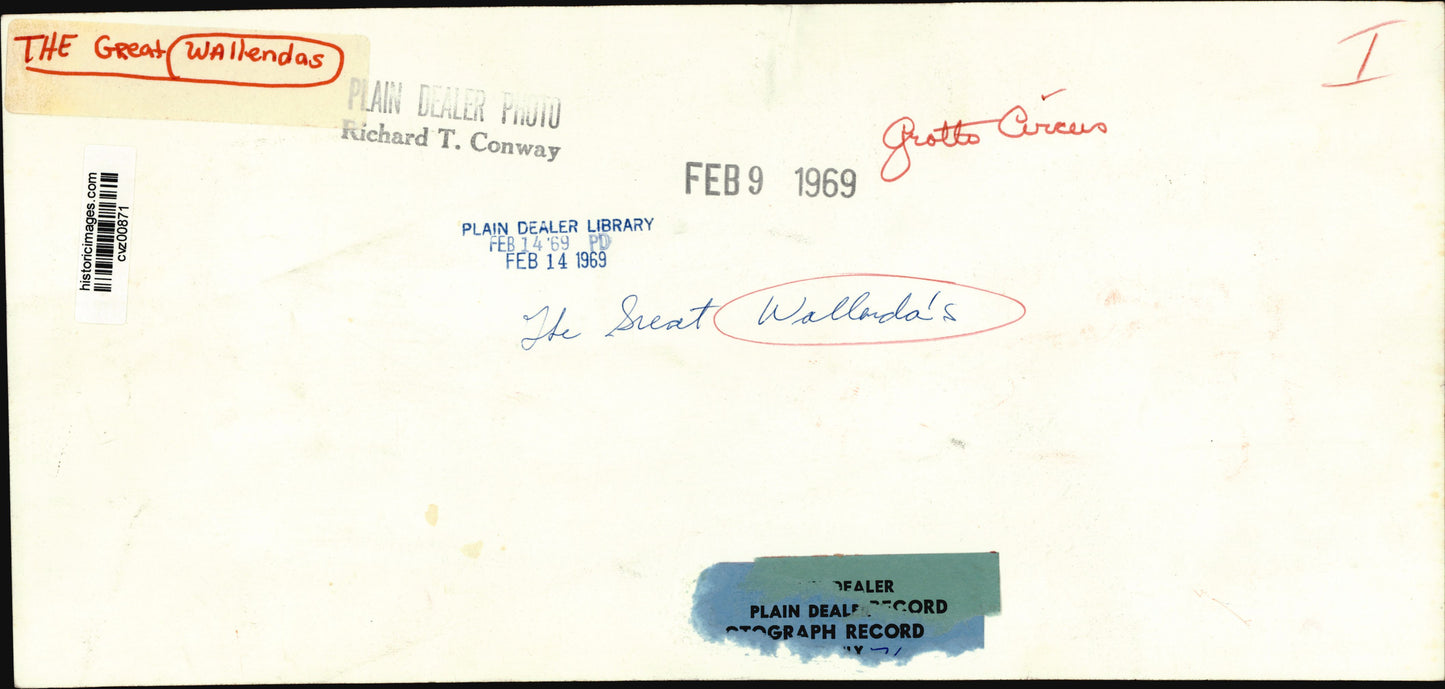 THE Great Wallendas
I
PLAIN DEALER PHOTO
Richard T. Conway
Grotto Circus
FEB 9 1969
historicimages.com
cvz00871
PLAIN DEALER LIBRARY
FEB 14 '69 PD
FEB 14 1969
The Great Wallenda's
DEALER
PLAIN DEALE RECORD
OTOGRAPH RECORD